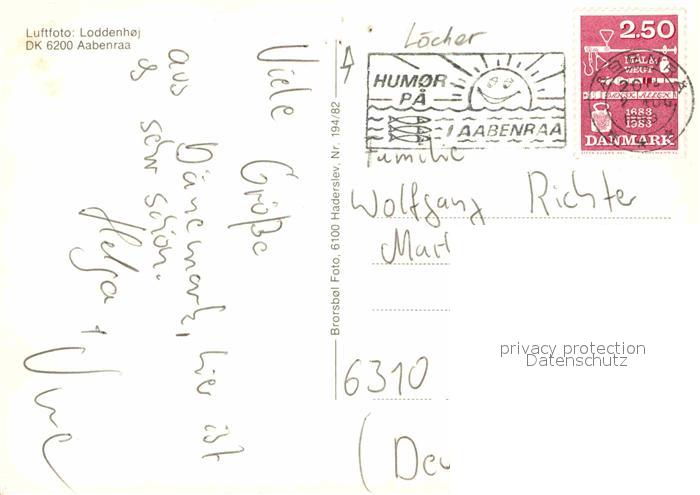 Luftfoto: Loddenhøj
DK 6200 Aabenraa
Viele Grüße
aus Dänemark, hier ist
es sehr schön.
Helga + Uwe
Brorsbøl Foto, 6100 Haderslev, Nr. 194/82
Löcher
HUMØR
PÅ
I AABENRAA
2.50
MÅL &
VÆGT
1683
1983
DANMARK
Familie
Wolfgang Richter
6310
privacy protection
Datenschutz